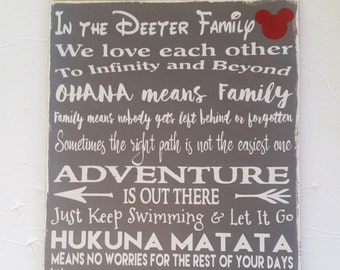 In the Deeter Family
We love each other
To Infinity and Beyond
OHANA means Family
Family means nobody gets left behind or forgotten
Sometimes the right path is not the easiest one
ADVENTURE
IS OUT THERE
Just Keep Swimming & Let It Go
HUKUNA MATATA
MEANS NO WORRIES FOR THE REST OF YOUR DAYS